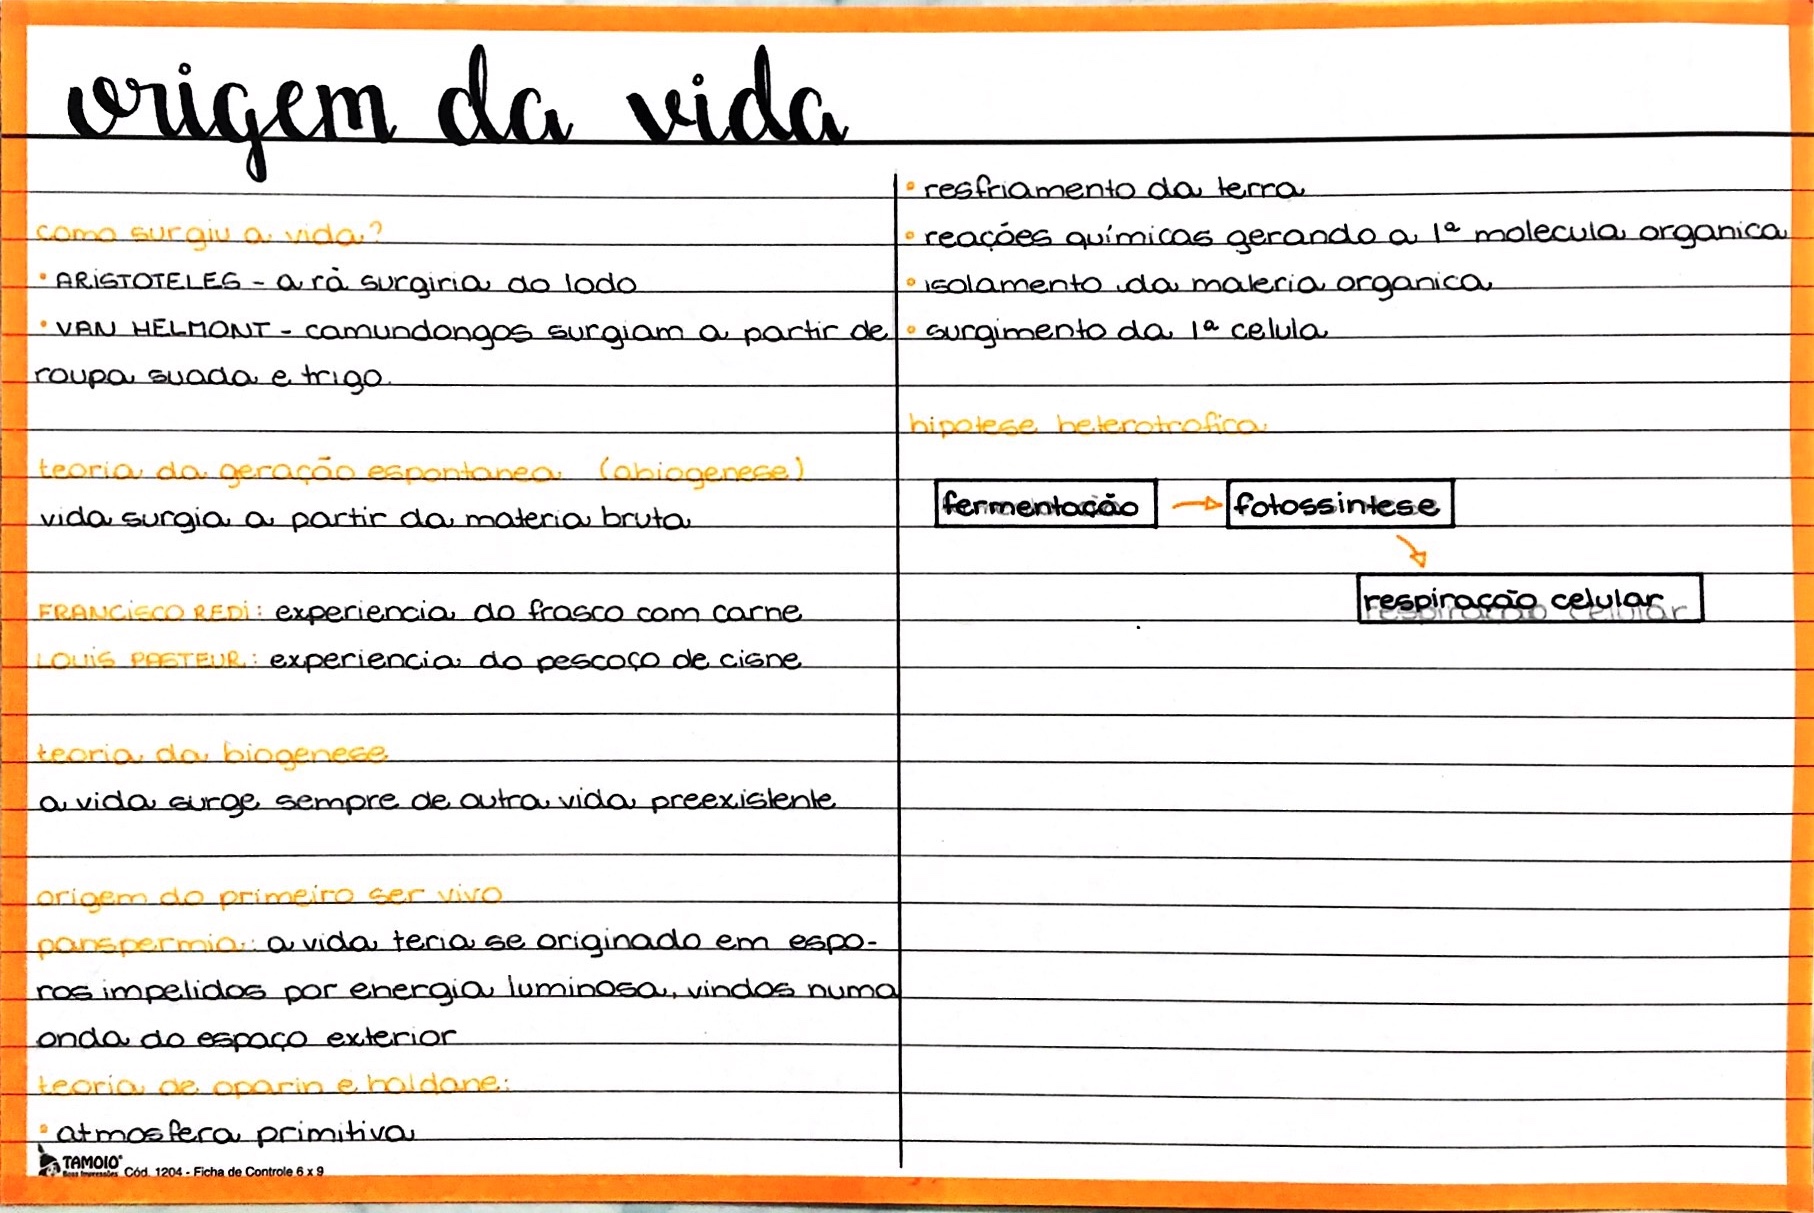 origem da vida
como surgiu a vida?
• ARISTOTELES - a rã surgiria do lodo
• VAN HELMONT - camundongos surgiam a partir de
roupa suada e trigo.
teoria da geração espontanea (abiogenese)
vida surgia a partir da materia bruta
FRANCISCO REDI: experiencia do frasco com carne
LOUIS PASTEUR: experiencia do pescoço de cisne
teoria da biogenese
a vida surge sempre de outra vida preexistente
origem do primeiro ser vivo
panspermia: a vida teria se originado em espo-
ros impelidos por energia luminosa, vindos numa
onda do espaço exterior
teoria de oparin e haldane:
• atmosfera primitiva
• resfriamento da terra
• reações químicas gerando a 1ª molecula organica
• isolamento da materia organica
• surgimento da 1ª celula
hipotese heterotrofica
fermentação → fotossintese
respiração celular
TAMOIO
Boas Impressões Cód. 1204 - Ficha de Controle 6 x 9